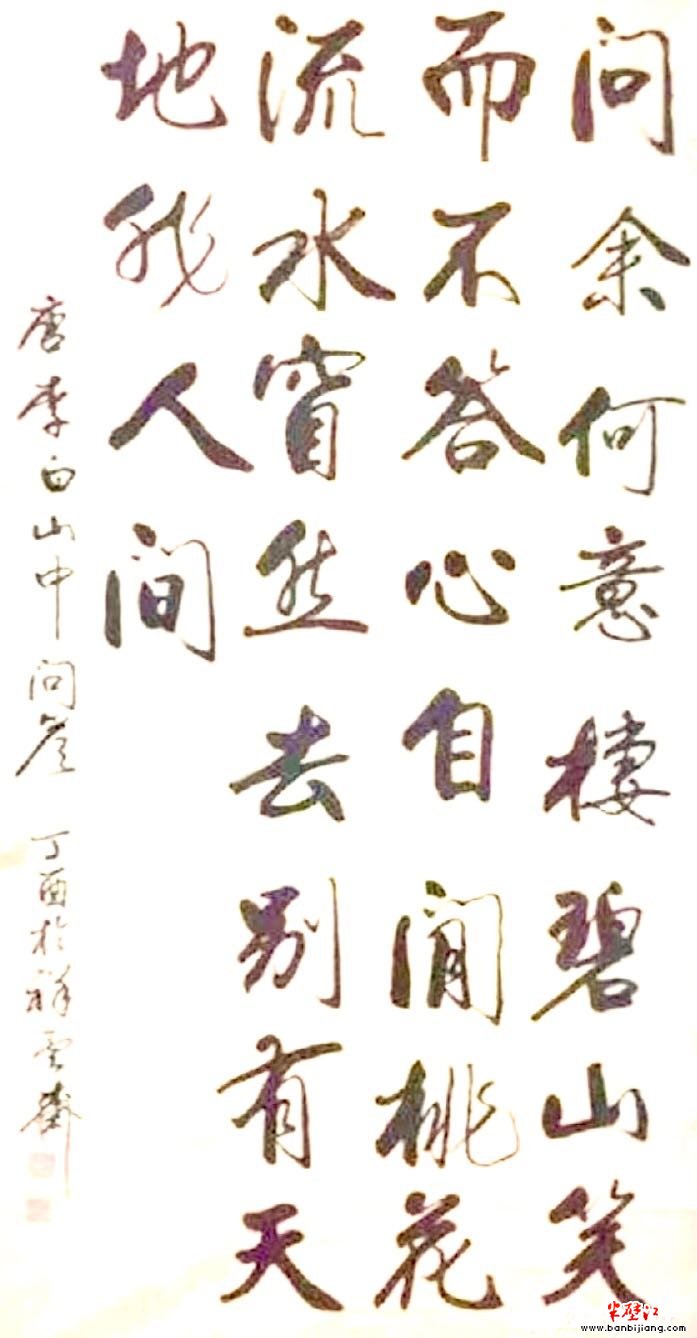 问余何意棲碧山笑
而不答心自閒桃花
流水窅然去别有天
地非人间
唐李白山中问答 丁酉於祥雲齋
半壁江
www.banbijiang.com